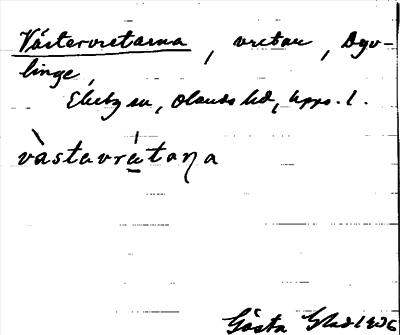 Västervretarna, vretar, Dyv-
linge,
Ekeby sn, Olands hd, Upps. l.
vàstavrátaṇa
Gösta Glad 1926